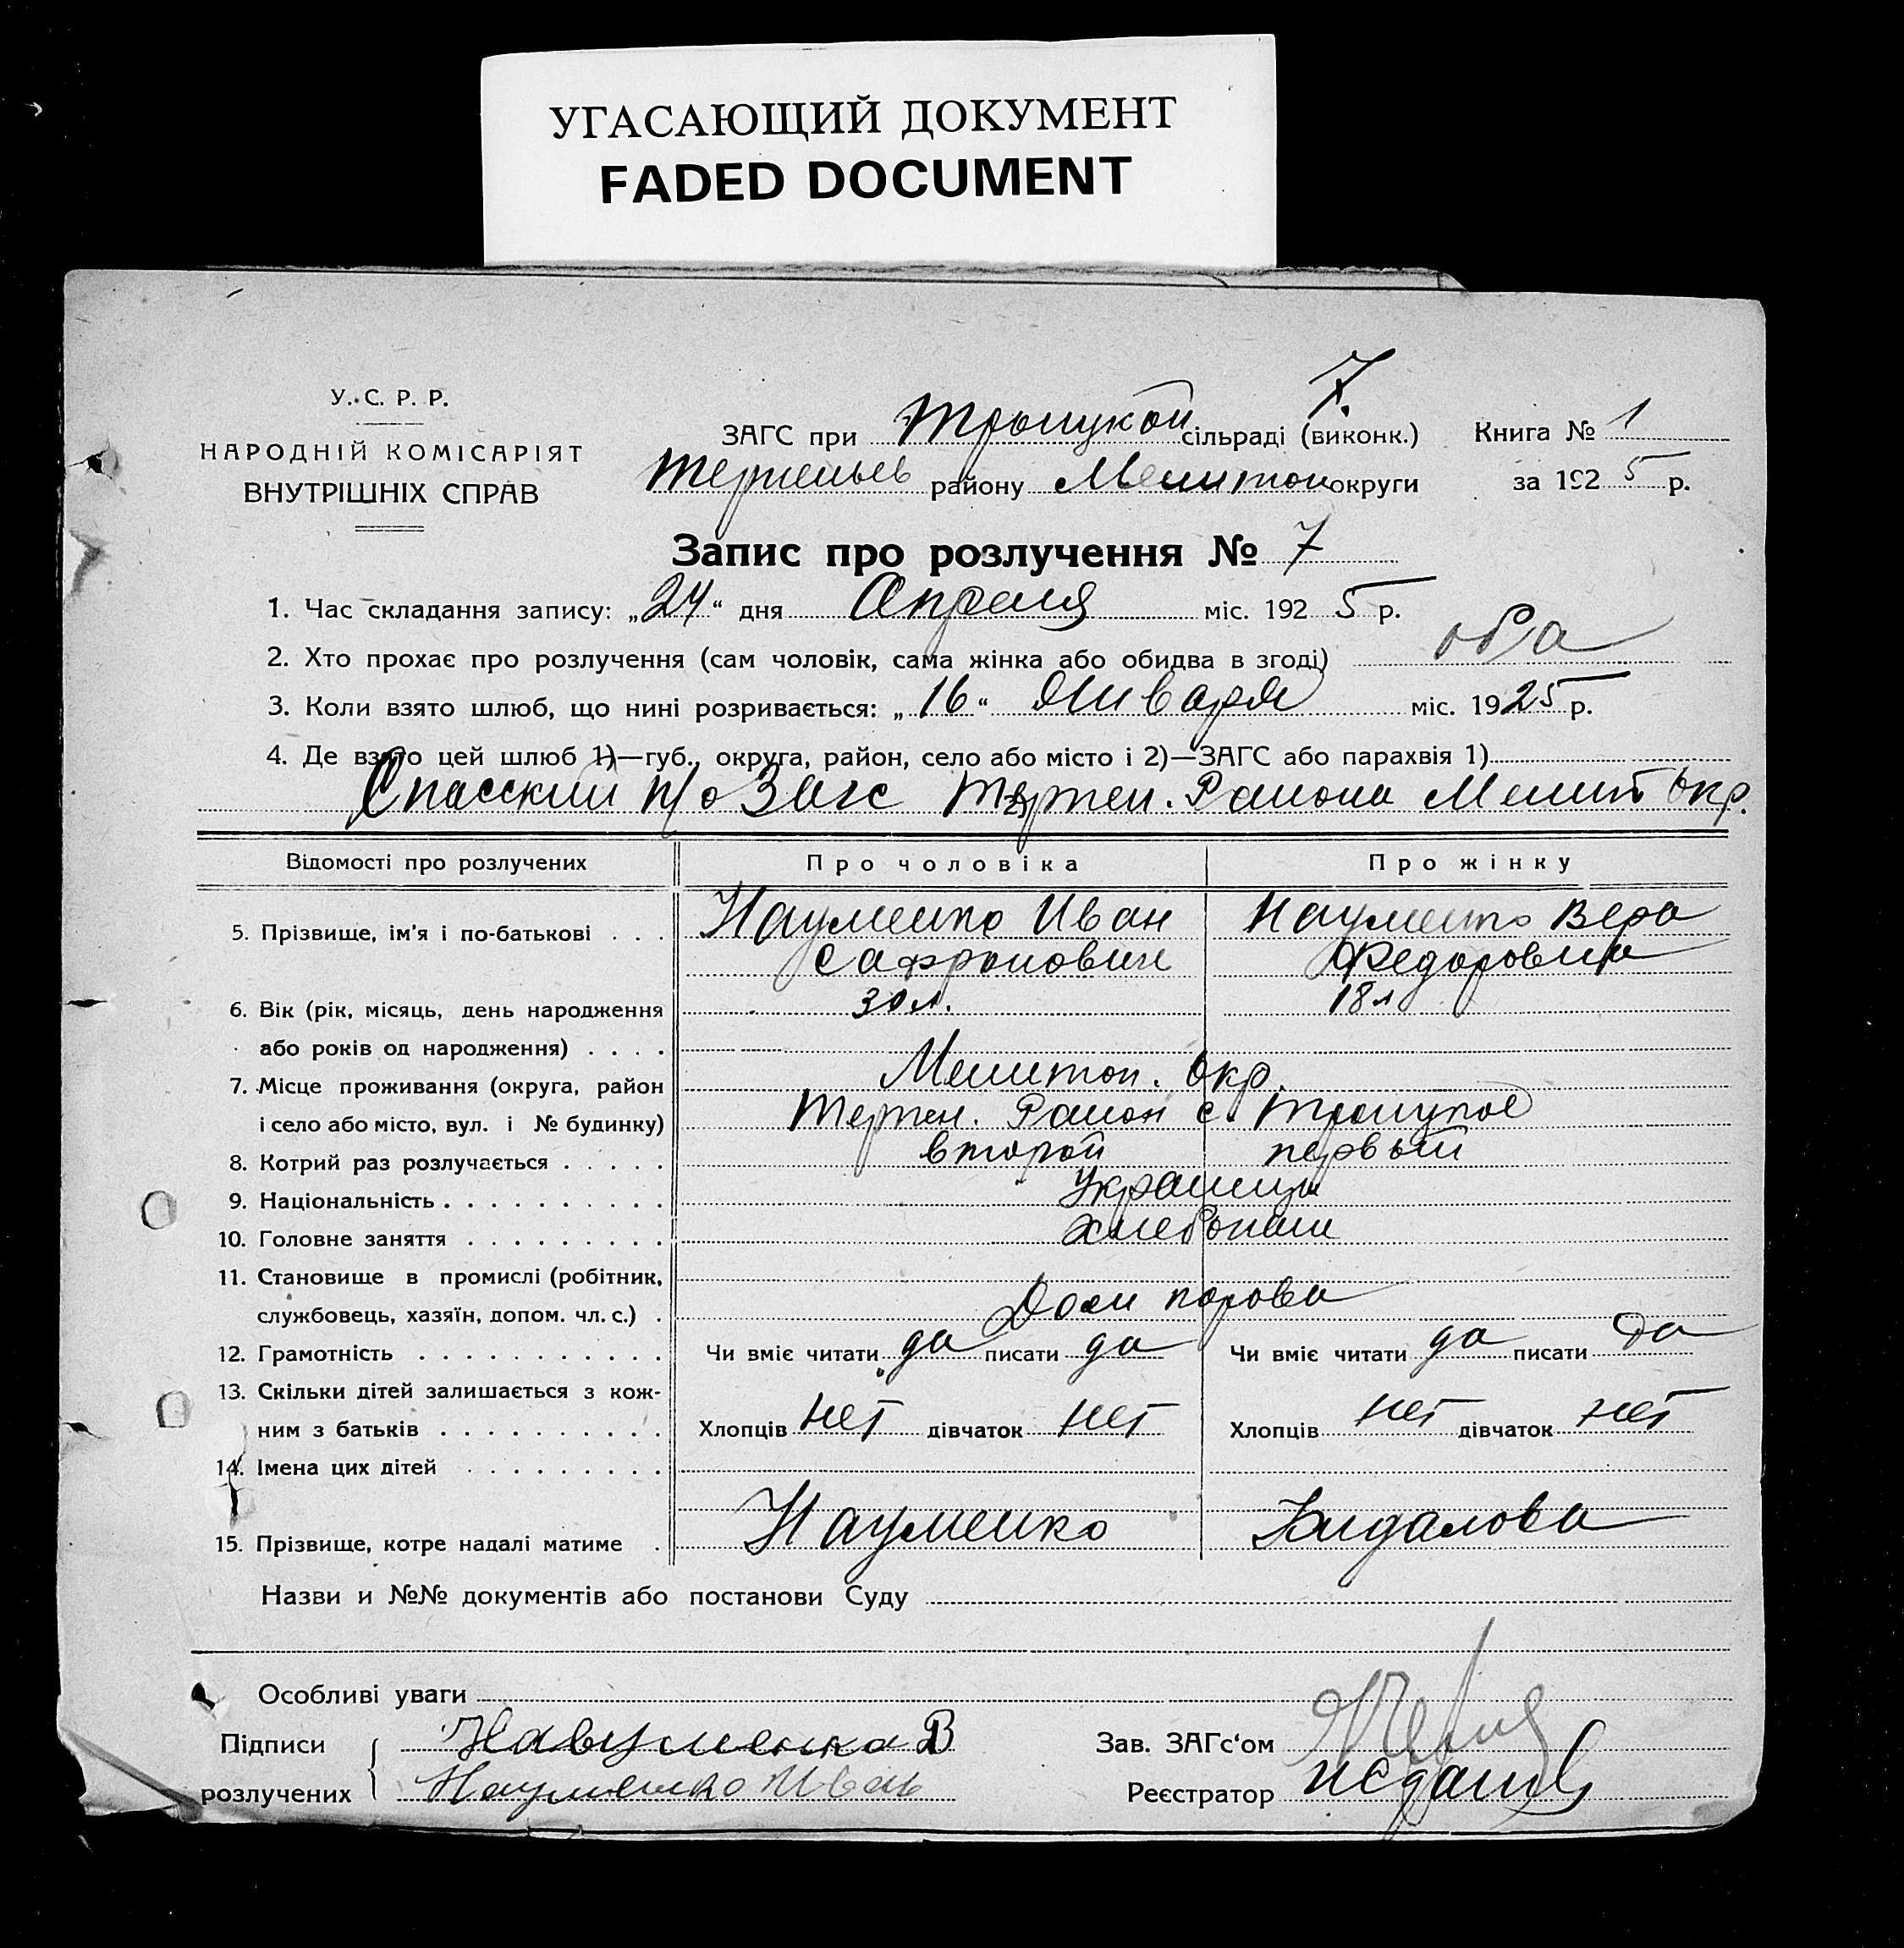 УГАСАЮЩИЙ ДОКУМЕНТ
FADED DOCUMENT
7.
У. С. Р. Р.
НАРОДНІЙ КОМІСАРІЯТ
ВНУТРІШНІХ СПРАВ
ЗАГС при Троицкой сільраді (виконк.) Книга № 1
району Мелитоп округи за 1925 р.
Запис про розлучення № 7
1. Час складання запису: „24“ дня Апреля міс. 1925 р.
2. Хто прохає про розлучення (сам чоловік, сама жінка або обидва в згоді) оба
3. Коли взято шлюб, що нині розривається: „16“ Января міс. 1925 р.
4. Де взято цей шлюб 1)—губ., округа, район, село або місто і 2)—ЗАГС або парахвія 1)
Спасский п/о Загс Терпен. Района Мелит Окр.
Відомості про розлучених Про чоловіка Про жінку
5. Прізвище, ім'я і по-батькові Науменко Иван Науменко Вера
Сафронович Федоровна
6. Вік (рік, місяць, день народження 30 л. 18 л
або років од народження)
7. Місце проживання (округа, район Мелитоп. Окр.
і село або місто, вул. і № будинку) Терпен. Район с. Троицкое
8. Котрий раз розлучається второй первый
9. Національність Украинцы
10. Головне заняття хлебопаш
11. Становище в промислі (робітник,
службовець, хазяїн, допом. чл. с.)
12. Грамотність Чи вміє читати да писати да Чи вміє читати да писати да
13. Скільки дітей залишається з кож-
ним з батьків Хлопців нет дівчаток нет Хлопців нет дівчаток нет
14. Імена цих дітей
15. Прізвище, котре надалі матиме Науменко
Назви и №№ документів або постанови Суду
Особливі уваги
Підписи Навуменко В Зав. ЗАГс'ом
розлучених Науменко Иван Реєстратор